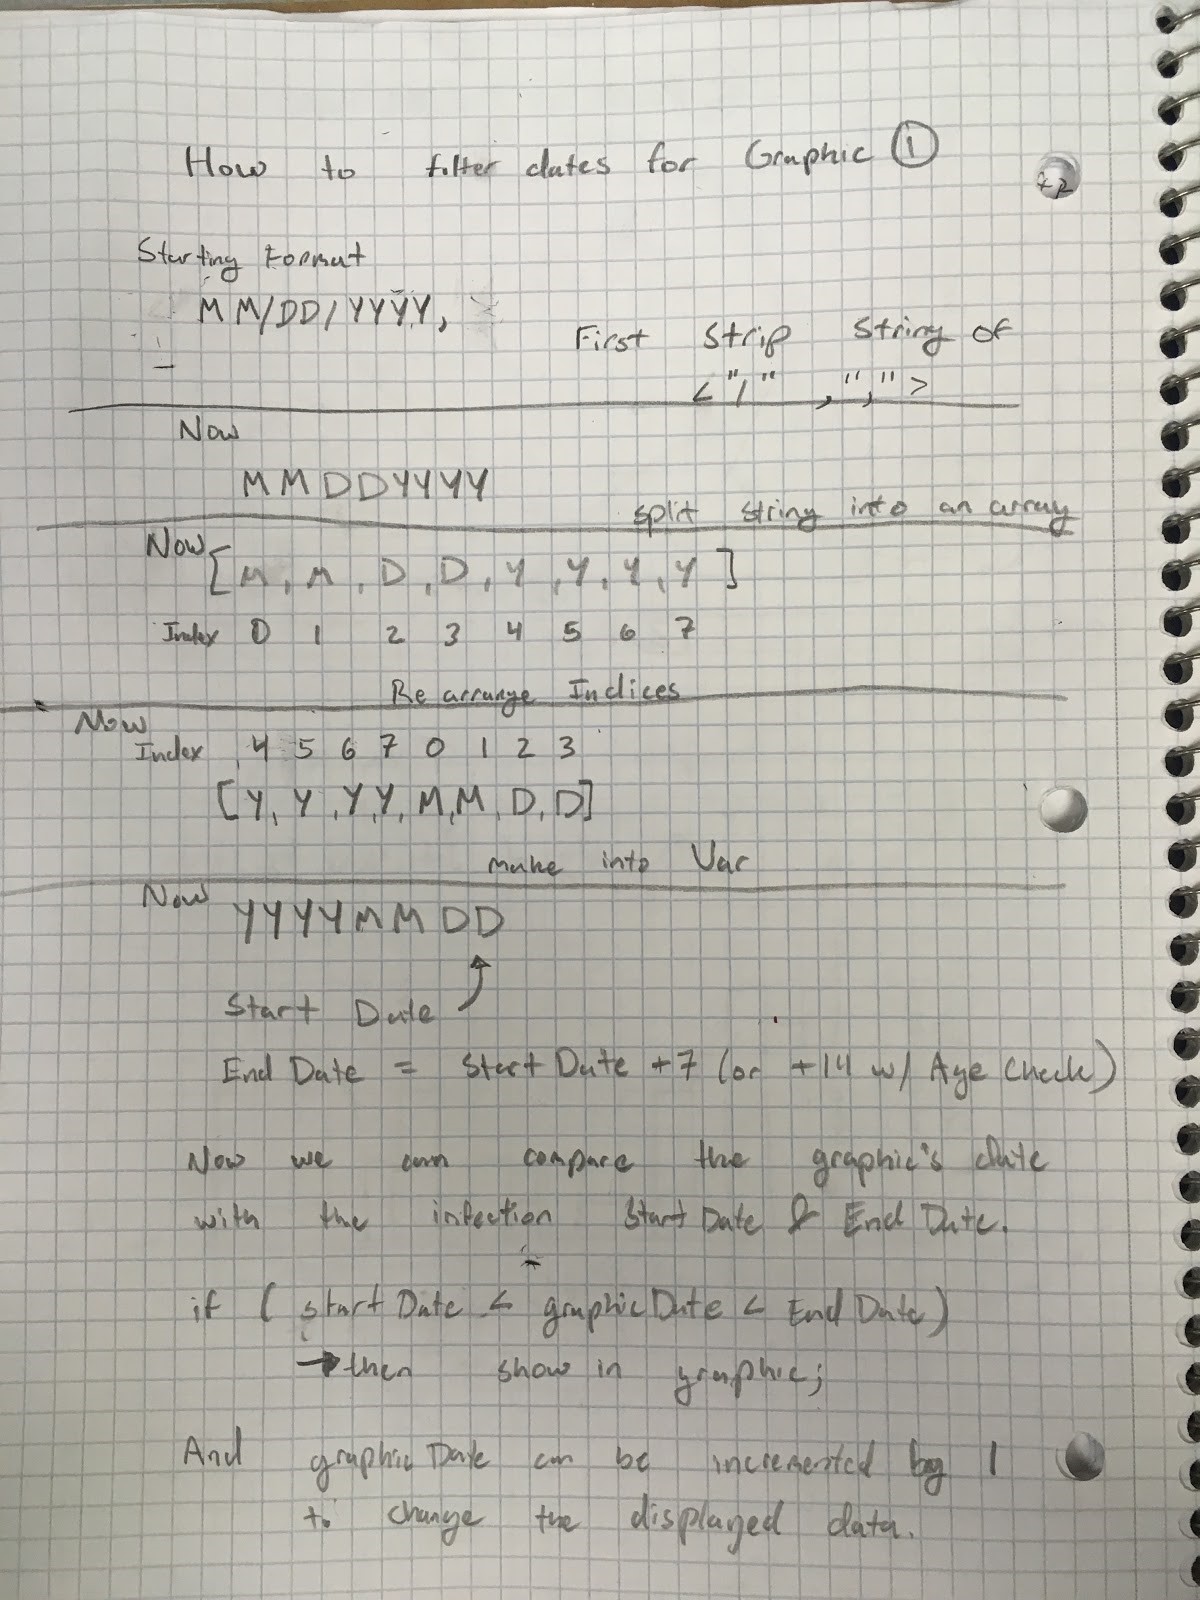 How to filter dates for Graphic 1
Starting Format
MM/DD/YYYY,
First Strip String of
<"/" , ",">
Now
MMDDYYYY
split string into an array
Now [M, M, D, D, Y, Y, Y, Y]
Index 0 1 2 3 4 5 6 7
Re arrange Indices
Now
Index 4 5 6 7 0 1 2 3
[Y, Y, Y, Y, M, M, D, D]
make into Var
Now YYYYMMDD
Start Date
End Date = Start Date +7 (or +14 w/ Age Check)
Now we can compare the graphic's date
with the infection Start Date & End Date.
if ( start Date < graphic Date < End Date)
→ then show in graphic;
And graphic Date can be incremented by 1
to change the displayed data.